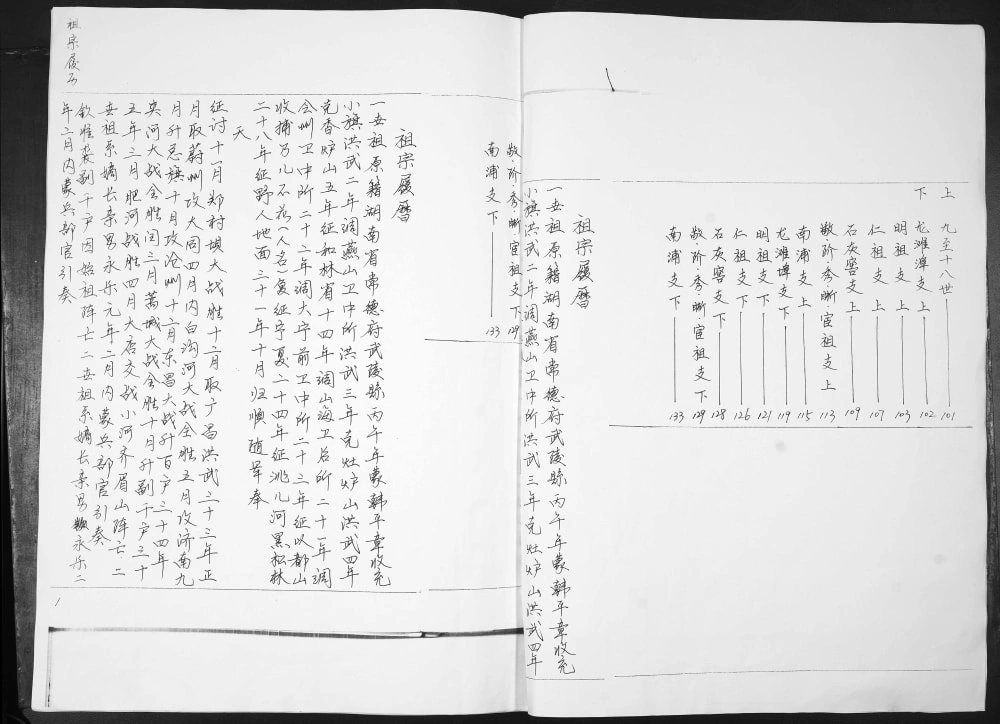 上
九至十八世 101
下
龙滩潭支上 102
明祖支上 103
仁祖支上 107
石灰窖支上 109
敬阶秀晰宦祖支上 113
南浦支上 115
龙滩潭支下 119
明祖支下 121
仁祖支下 126
石灰窖支下 128
敬·阶·秀·晰·宦祖支下 129
南浦支下 133
祖宗履曆
一世祖原籍湖南省常德府武陵縣丙午年蒙韩平章收充
小旗洪武二年调燕山卫中所洪武三年克灶炉山洪武四年
敬·阶·秀·晰·宦祖支下 129
南浦支下 133
祖宗履曆
一世祖原籍湖南省常德府武陵縣丙午年蒙韩平章收充
小旗洪武二年调燕山卫中所洪武三年克灶炉山洪武四年
克香炉山五年征和林省十四年调山海卫右所二十一年调
会州卫中所二十二年调大宁前卫中所二十三年征以都山
收捕乃儿不花(人名)复征宁夏二十四年征洮儿河黑松林
二十八年征野人地面三十一年十月归顺随军奉
天
征讨十一月郑村坝大战胜十二月取广昌洪武三十三年正
月取蔚州攻大同四月内白沟河大战全胜五月攻济南九
月升总旗十月攻沧州十二月东昌大战升百户三十四年
夹河大战全胜闰三月藁城大战全胜十月升副千户三十
五年三月肥河战胜四月大店交战小河齐眉山阵亡二
世祖系嫡长亲男永乐元年二月内蒙兵部官引奏
钦准袭副千户因始祖阵亡二世祖系嫡长亲男永乐二
年三月内蒙兵部官引奏
祖宗履历
1